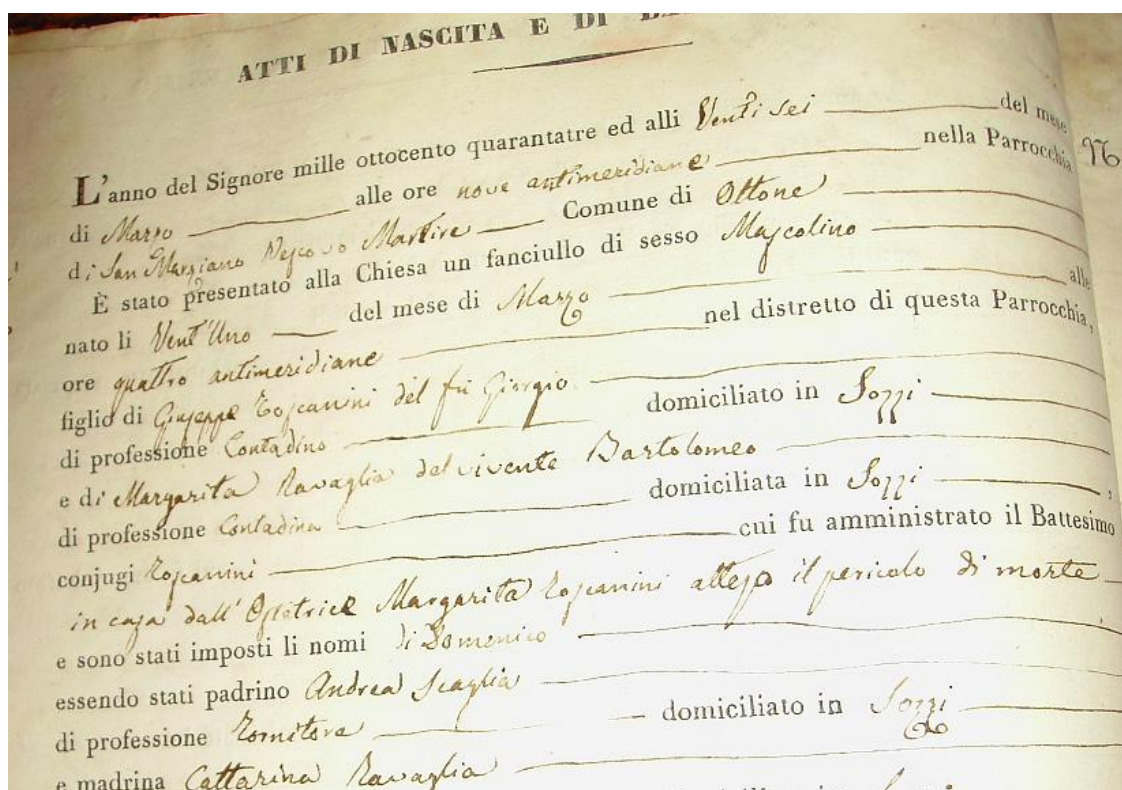 ATTI DI NASCITA E DI
L'anno del Signore mille ottocento quarantatre ed alli Venti sei del mese
di Marzo alle ore nove antimeridiane nella Parrocchia
di San Marziano Vescovo Martire Comune di Ottone
È stato presentato alla Chiesa un fanciullo di sesso Mascolino
nato li Vent'Uno del mese di Marzo alle
ore quattro antimeridiane nel distretto di questa Parrocchia,
figlio di Giuseppe Toscanini del fù Giorgio
di professione Contadino domiciliato in Sozzi
e di Margarita Ravaglia del vivente Bartolomeo
di professione Contadina domiciliata in Sozzi,
conjugi Toscanini cui fu amministrato il Battesimo
in casa dall'Ostetrice Margarita Toscanini atteso il pericolo di morte
e sono stati imposti li nomi di Domenico
essendo stati padrino Andrea Scaglia
di professione Tornitore domiciliato in Sozzi
e madrina Cattarina Ravaglia